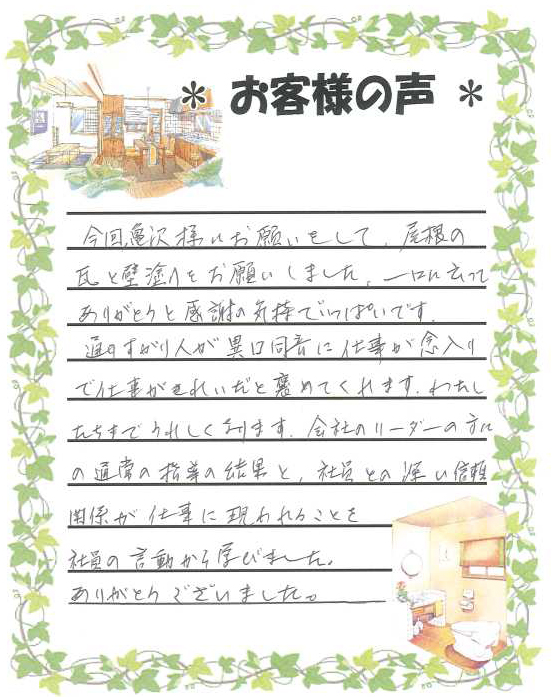 * お客様の声 *
今回、亀沢様にお願いをして、屋根の
瓦と壁塗りをお願いしました。一口に云って
ありがとうと感謝の気持でいっぱいです。
通りすがり人が異口同音に仕事が念入り
で仕事がきれいだと褒めてくれます。わたし
たちまでうれしくなります。会社のリーダーの方に
の通常の指導の結果と、社員との深い信頼
関係が仕事に現われることを
社員の言動から学びました。
ありがとうございました。